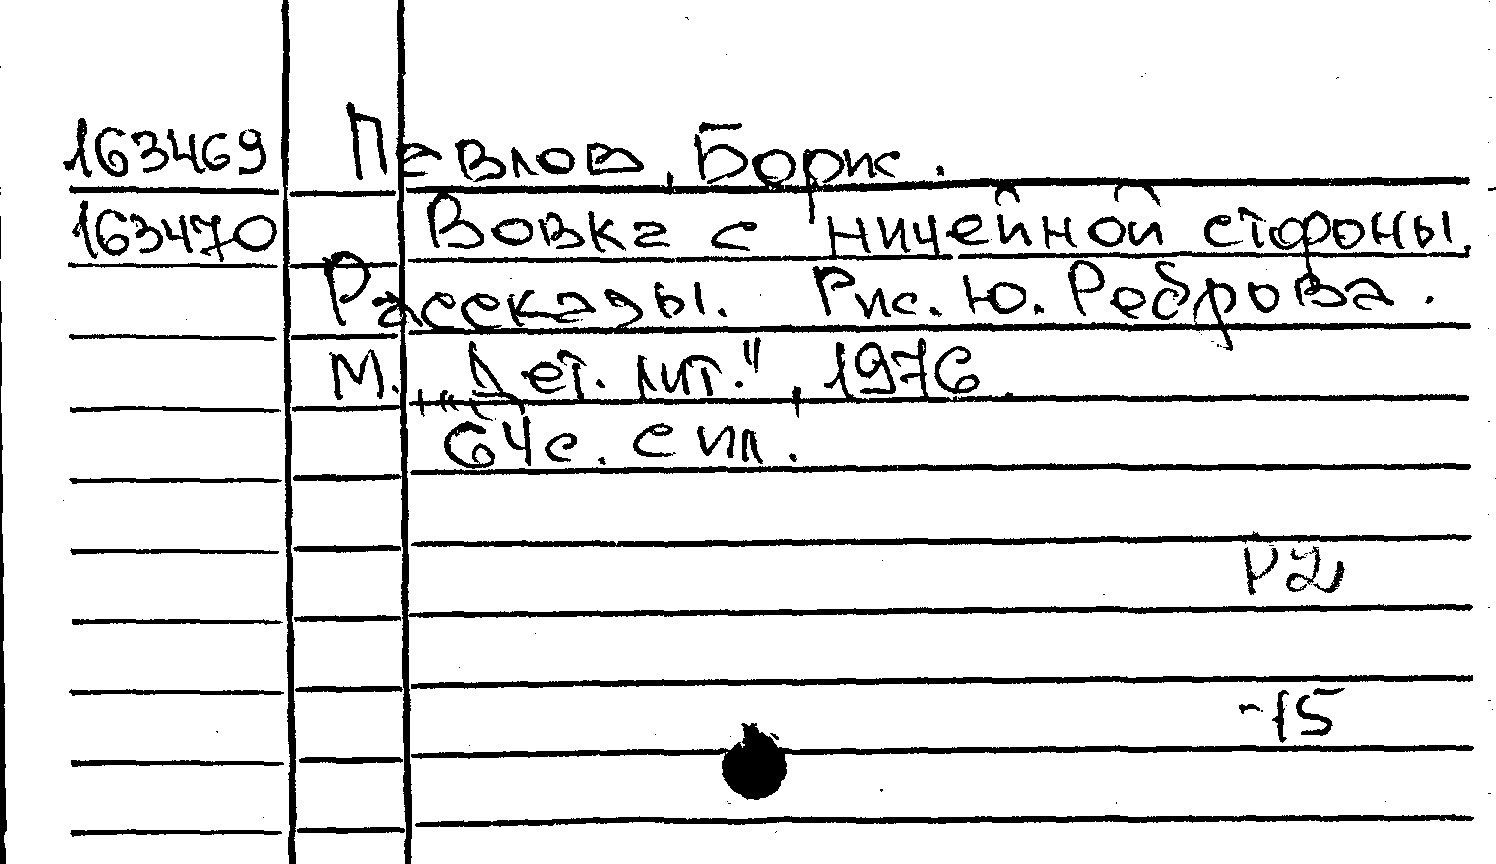 163469 Павлов, Борис.
163470 Вовка с ничейной стороны.
Рассказы. Рис. Ю. Реброва.
М., „Дет. лит.", 1976.
64с. с ил.
Р2
-15